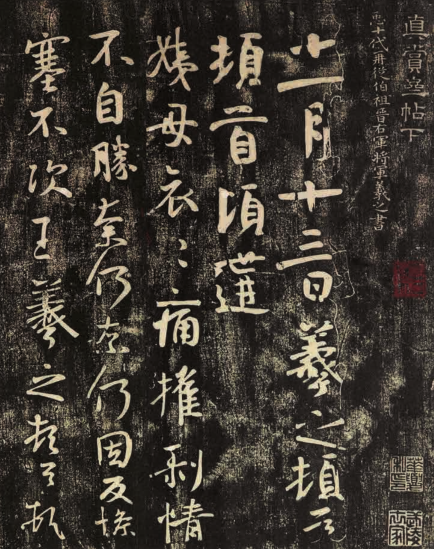 真賞齋帖下
臣十代再從伯祖晉右軍將軍羲之書
十一月十三日羲之頓首
頓首頃遘
姨母哀〻痛摧剝情
不自勝奈何奈何因反慘
塞不次王羲之頓首頓首